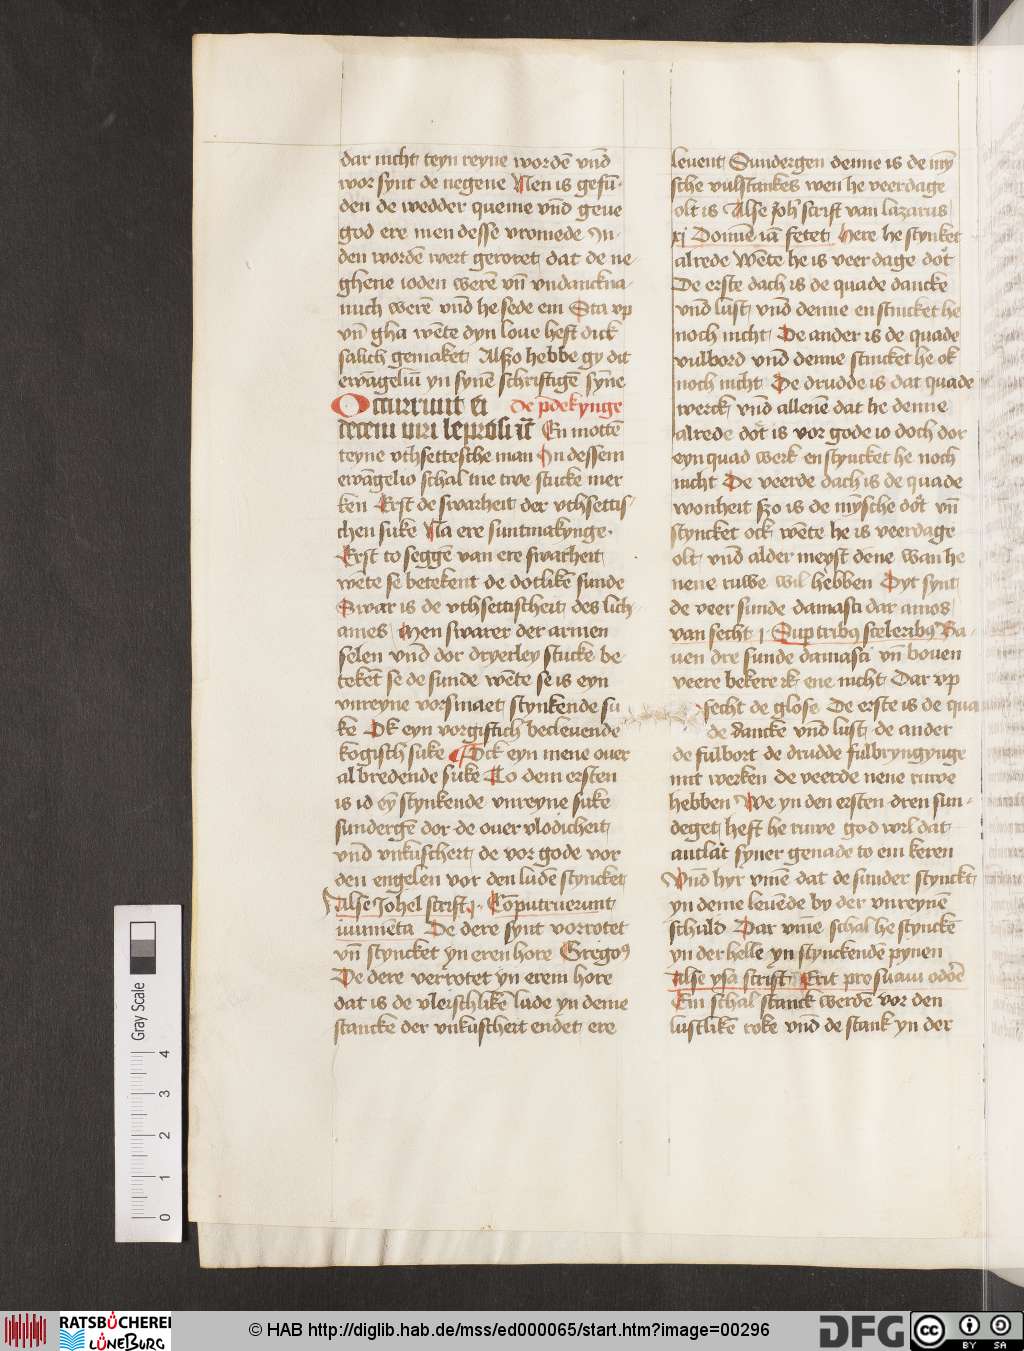 dar nicht teyn reyne wordē vnd̄
wor synt de negene Nen is gefū-
den de wedder queme vnd̄ geue
god ere men desse vromede In-
den wordē wert geroret dat de ne-
ghene ioden werē vn̄ vndanckna-
mich werē vnd̄ he sede em Sta vp
vn̄ gha wēte dyn loue heft dick
salich gemaket Also hebbe gy dit
ewāgeliū yn synē schriftigē synne
Occurrunt ei de p̄dekynge
decem viri leprosi Em mottē
teyne vthsettesche man In dessem
ewāgelio schal me twe stucke mer
ken Erst de swarheit der vthsettis-
chen suke Na ere suntmakynge
Erst to seggē van ere swarheit
wēte se betekent de dotlikē sunde
Swar is de vthsettischeit des lich-
ames Men swarer der armen
selen vnd̄ dor dryerley stucke be-
teket se de sunde wēte se is eyn
vnreyne vorsmaet stynkende su
ke Ok eyn vorgiftich becleuende
kogisch suke Ock eyn mene ouer
al bredende suke To dem ersten
is id eȳ stynkende vnreyne suke
sundergē dor de ouervlodicheit
vnd̄ vnkuscheit de vor gode vor
den engelen vor den ludē styncket
Alse Johel scrift j Cōputruerunt
iumēta De dere synt vorrotet
vn̄ styncket yn eren hore Gregoꝰ
De dere verrotet yn erem hore
dat is de vleischlikē lude yn deme
stancke der vnkuscheit endet ere
leuent Sundergen denne is de mȳ
sche vulstankes wen he veerdage
olt is Alse joh̄ scrift van lazarus
xj Domīe iā fetet Here he stynket
alrede wēte he is veer dage dot
De erste dach is de quade dancke
vnd̄ lust vnd̄ denne en stincket he
noch nicht De ander is de quade
vulbord vnd̄ denne stincket he ok
noch nicht De drudde is dat quade
werck vnd̄ allenē dat he denne
alrede dot is vor gode io doch dor
eyn quad werk en styncket he noch
nicht De veerde dach is de quade
wonheit szo is de mȳsche dot vn̄
styncket ock wēte he is veerdage
olt vnd̄ alder meyst dēne wan he
nene ruwe wil hebben Dyt synt
de veer sunde damasci dar amos
van secht j Sup tribꝰ sceleribꝰ Ba-
uen dre sunde damasci vn̄ bouen
veere bekere ik ene nicht Dar vp
secht de glose De erste is de qua
de dancke vnd̄ lust de ander
de fulbort de drudde fulbryngynge
mit werken de veerde nene ruwe
hebben We yn den ersten dren sun-
deget heft he ruwe god wil dat
antlat syner genade to em keren
Vnd̄ hyr vmē dat de sunder stynckt
yn deme leuēde by der vnreynē
schuld Dar vme schal he stynckē
yn der helle yn stynckendē pynen
Alse ysa scrift Erit pro suaui odore
Ein schal stanck werdē vor den
lustlikē roke vnd̄ de stank yn der
Gray Scale
4
3
2
1
0
RATSBÜCHEREI
LÜNEBURG
© HAB http://diglib.hab.de/mss/ed000065/start.htm?image=00296
DFG
cc
BY SA